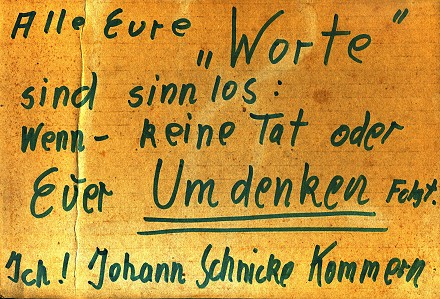 Alle Eure „Worte"
sind sinnlos:
Wenn - keine Tat oder
Euer Umdenken Folgt.
Ich! Johann Schnicke Kommern